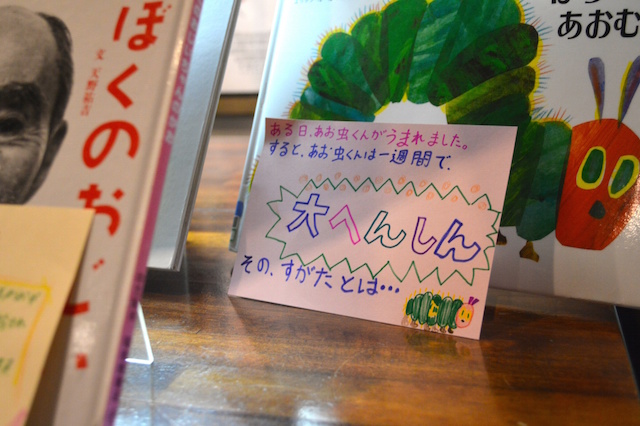 ぼくのお
文 天野祐吉
あおむ
ある日、あお虫くんがうまれました。
すると、あお虫くんは一週間で、
大へんしん
その、すがたとは…